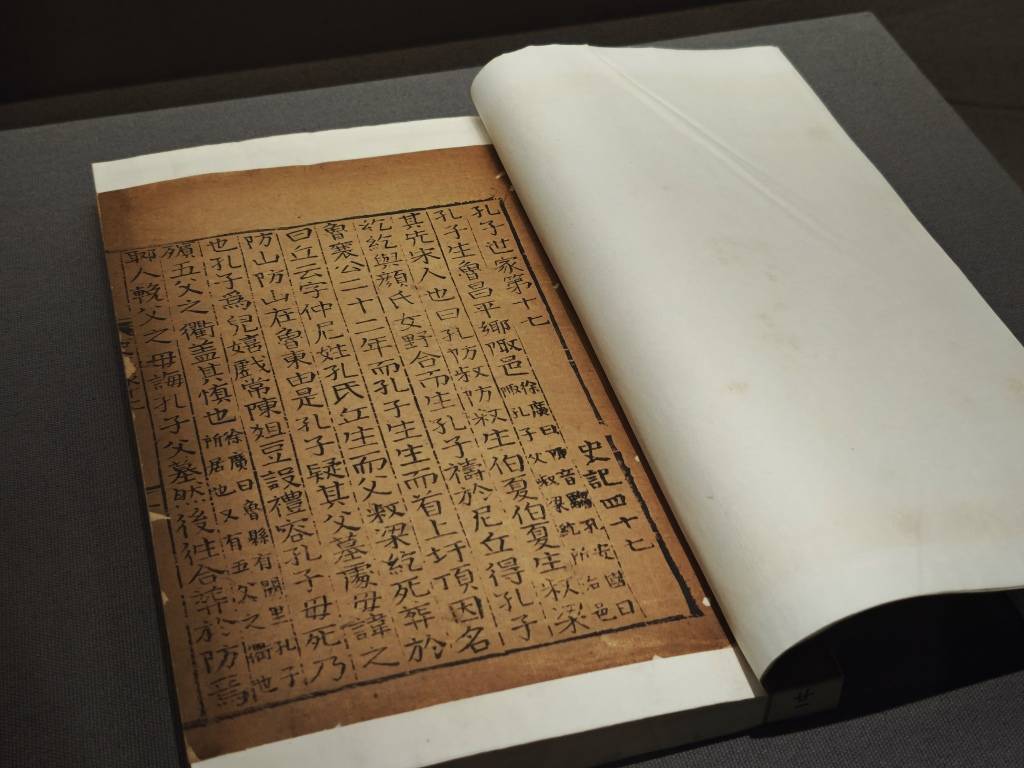 孔子世家第十七 史記四十七
孔子生魯昌平鄉陬邑徐廣曰陬音騶孔安國曰
陬孔子父叔梁紇所治邑
其先宋人也曰孔防叔防叔生伯夏伯夏生叔梁
紇紇與顏氏女野合而生孔子禱於尼丘得孔子
魯襄公二十二年而孔子生生而首上圩頂因名
曰丘云字仲尼姓孔氏丘生而父叔梁紇死葬於
防山防山在魯東由是孔子疑其父墓處母諱之
也孔子爲兒嬉戲常陳俎豆設禮容孔子母死乃
殯五父之衢蓋其慎也徐廣曰魯縣有闕里孔子
所居也又有五父之衢也
郰人輓父之母誨孔子父墓然後往合葬於防焉